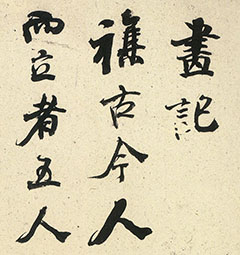 畫記
襍古今人
而立者五人